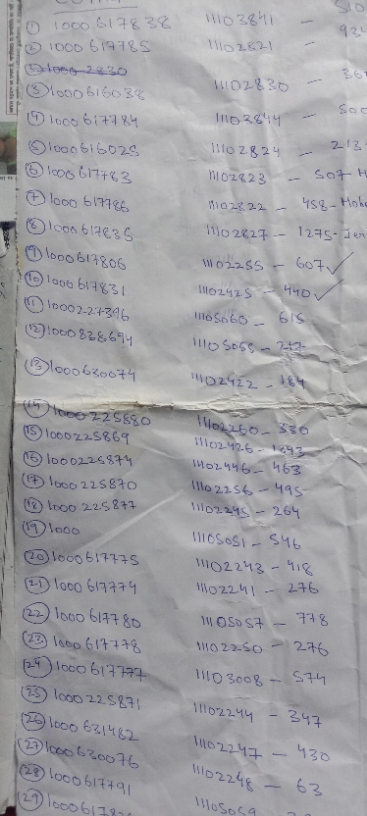 ① 1000617838 11103841 -
② 1000617785 11102821 -
1000 2830
③ 1000616038 11102830 -
④ 1000617784 11103844 -
⑤ 1000616025 11102824 - 213
⑥ 1000617783 11102823 - 507
⑦ 1000617786 11102822 - 458 -
⑧ 1000617835 11102827 - 1275 -
⑨ 1000617806 11102255 - 607 ✓
⑩ 1000617831 11102425 - 440 ✓
⑪ 1000227396 11105060 - 615
⑫ 1000838694 11105058 - 272
⑬ 1000630074 11102422 - 184
⑭ 1000225880 11102260 - 330
⑮ 1000225869 11102426 - 1343
⑯ 1000225874 11102446 - 463
⑰ 1000225870 11102256 - 495
⑱ 1000225877 11102245 - 264
⑲ 1000 11105051 - 546
⑳ 1000617775 11102243 - 418
㉑ 1000617774 11102241 - 276
㉒ 1000617780 11105057 - 778
㉓ 1000617778 11102250 - 276
㉔ 1000617777 11103008 - 574
㉕ 1000225871 11102244 - 347
㉖ 1000631482 11102247 - 430
㉗ 1000630076 11102248 - 63
㉘ 1000617791 11105059
㉙